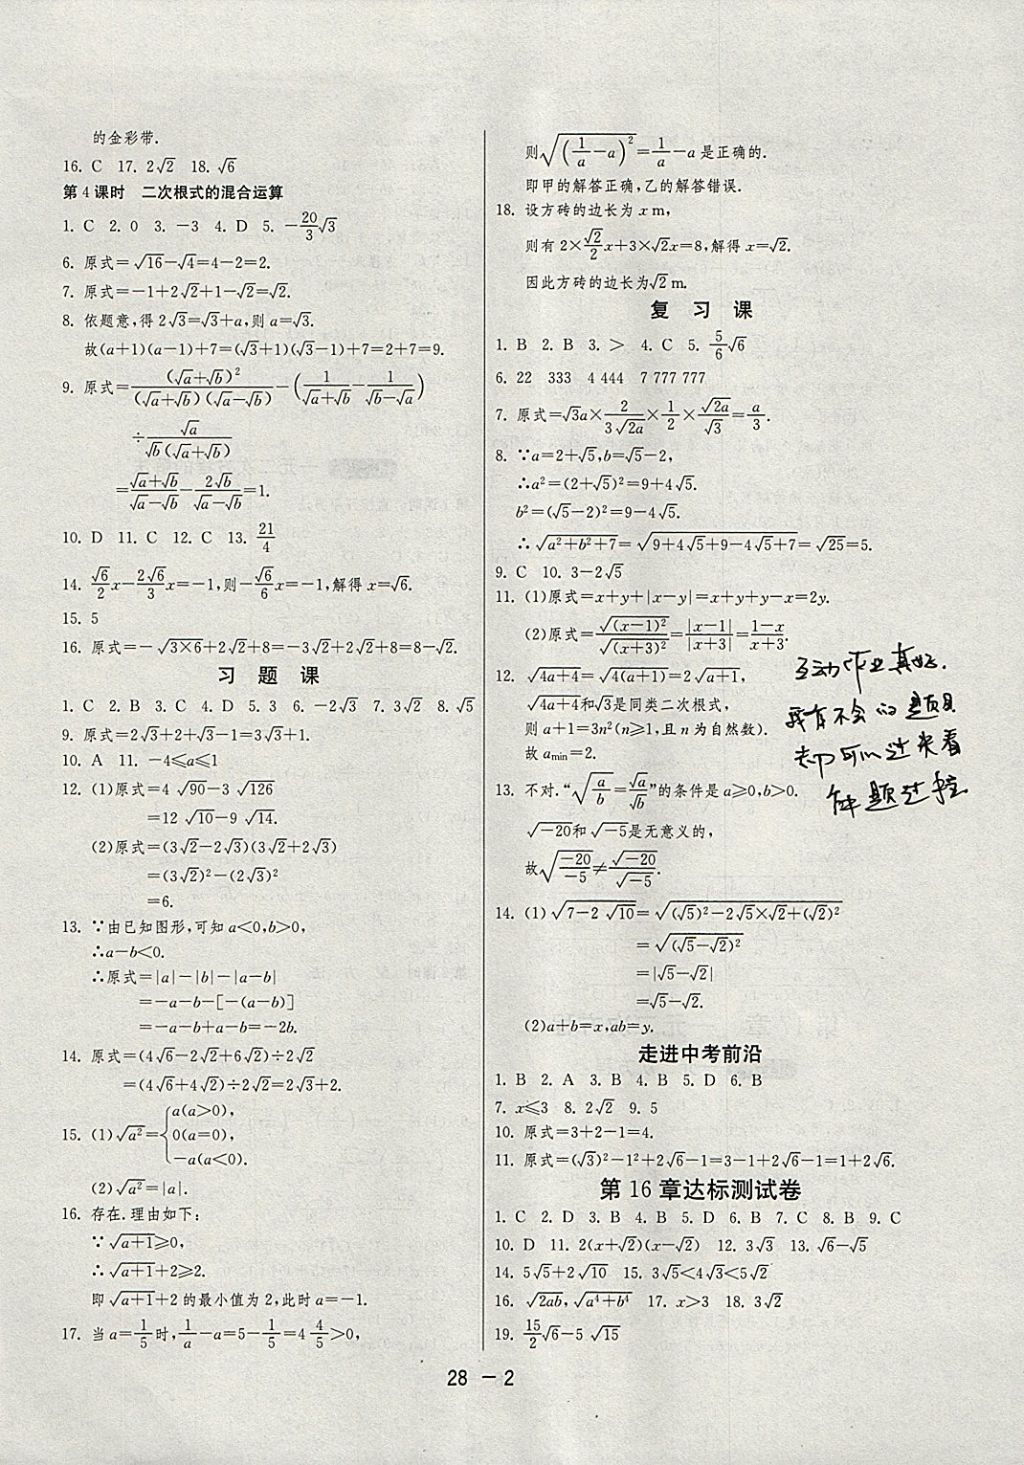 的金彩带.
16. C 17. 2√2 18. √6
第4课时 二次根式的混合运算
1. C 2. 0 3. −3 4. D 5. −20/3√3
6. 原式=√16−√4=4−2=2.
7. 原式=−1+2√2+1−√2=√2.
8. 依题意,得2√3=√3+a,则a=√3.
故(a+1)(a−1)+7=(√3+1)(√3−1)+7=2+7=9.
9. 原式=(√a+√b)²/((√a+√b)(√a−√b))−(1/(√a+√b)−1/(√b−√a))
÷√a/(√b(√a+√b))
=(√a+√b)/(√a−√b)−2√b/(√a−√b)=1.
10. D 11. C 12. C 13. 21/4
14. √6/2x−2√6/3x=−1,则−√6/6x=−1,解得x=√6.
15. 5
16. 原式=−√(3×6)+2√2+8=−3√2+2√2+8=8−√2.
习 题 课
1. C 2. B 3. C 4. D 5. 3 6. −2√3 7. 3√2 8. √5
9. 原式=2√3+2+√3−1=3√3+1.
10. A 11. −4⩽a⩽1
12. (1)原式=4√90−3√126
=12√10−9√14.
(2)原式=(3√2−2√3)(3√2+2√3)
=(3√2)²−(2√3)²
=6.
13. ∵由已知图形,可知a<0,b>0,
∴a−b<0.
∴原式=|a|−|b|−|a−b|
=−a−b−[−(a−b)]
=−a−b+a−b=−2b.
14. 原式=(4√6−2√2+6√2)÷2√2
=(4√6+4√2)÷2√2=2√3+2.
15. (1)√a²={a(a>0),
0(a=0),
−a(a<0).
(2)√a²=|a|.
16. 存在.理由如下:
∵√(a+1)⩾0,
∴√(a+1)+2⩾2.
即√(a+1)+2的最小值为2,此时a=−1.
17. 当a=1/5时,1/a−a=5−1/5=4 4/5>0,
则√((1/a−a)²)=1/a−a是正确的.
即甲的解答正确,乙的解答错误.
18. 设方砖的边长为x m,
则有2×√2/2x+3×√2x=8,解得x=√2.
因此方砖的边长为√2 m.
复 习 课
1. B 2. B 3. > 4. C 5. 5/6√6
6. 22 333 4 444 7 777 777
7. 原式=√3a×2/(3√2a)×1/2×√2a/√3=a/3.
8. ∵a=2+√5,b=√5−2,
∴a²=(2+√5)²=9+4√5.
b²=(√5−2)²=9−4√5.
∴√(a²+b²+7)=√(9+4√5+9−4√5+7)=√25=5.
9. C 10. 3−2√5
11. (1)原式=x+y+|x−y|=x+y+y−x=2y.
(2)原式=√(x−1)²/√(x+3)²=|x−1|/|x+3|=(1−x)/(x+3).
12. √(4a+4)=√(4(a+1))=2√(a+1),
√(4a+4)和√3是同类二次根式,
则a+1=3n²(n⩾1,且n为自然数).
故a_min=2.
13. 不对.“√(a/b)=√a/√b”的条件是a⩾0,b>0.
√−20和√−5是无意义的,
故√(−20/−5)≠√−20/√−5.
14. (1)√(7−2√10)=√((√5)²−2√5×√2+(√2)²)
=√((√5−√2)²)
=|√5−√2|
=√5−√2.
(2)a+b=x,ab=y.
走进中考前沿
1. B 2. A 3. B 4. B 5. D 6. B
7. x⩽3 8. 2√2 9. 5
10. 原式=3+2−1=4.
11. 原式=(√3)²−1²+2√6−1=3−1+2√6−1=1+2√6.
第16章达标测试卷
1. C 2. D 3. B 4. B 5. D 6. B 7. C 8. B 9. C
10. D 11. 2(x+√2)(x−√2) 12. 3√3 13. √6−√5
14. 5√5+2√10 15. 3√5<4√3<5√2
16. √2ab,√(a⁴+b⁴) 17. x>3 18. 3√2
19. 15/2√6−5√15
互动作业真好.
我有不会的题目
却可以过来看
解题过程
28 − 2